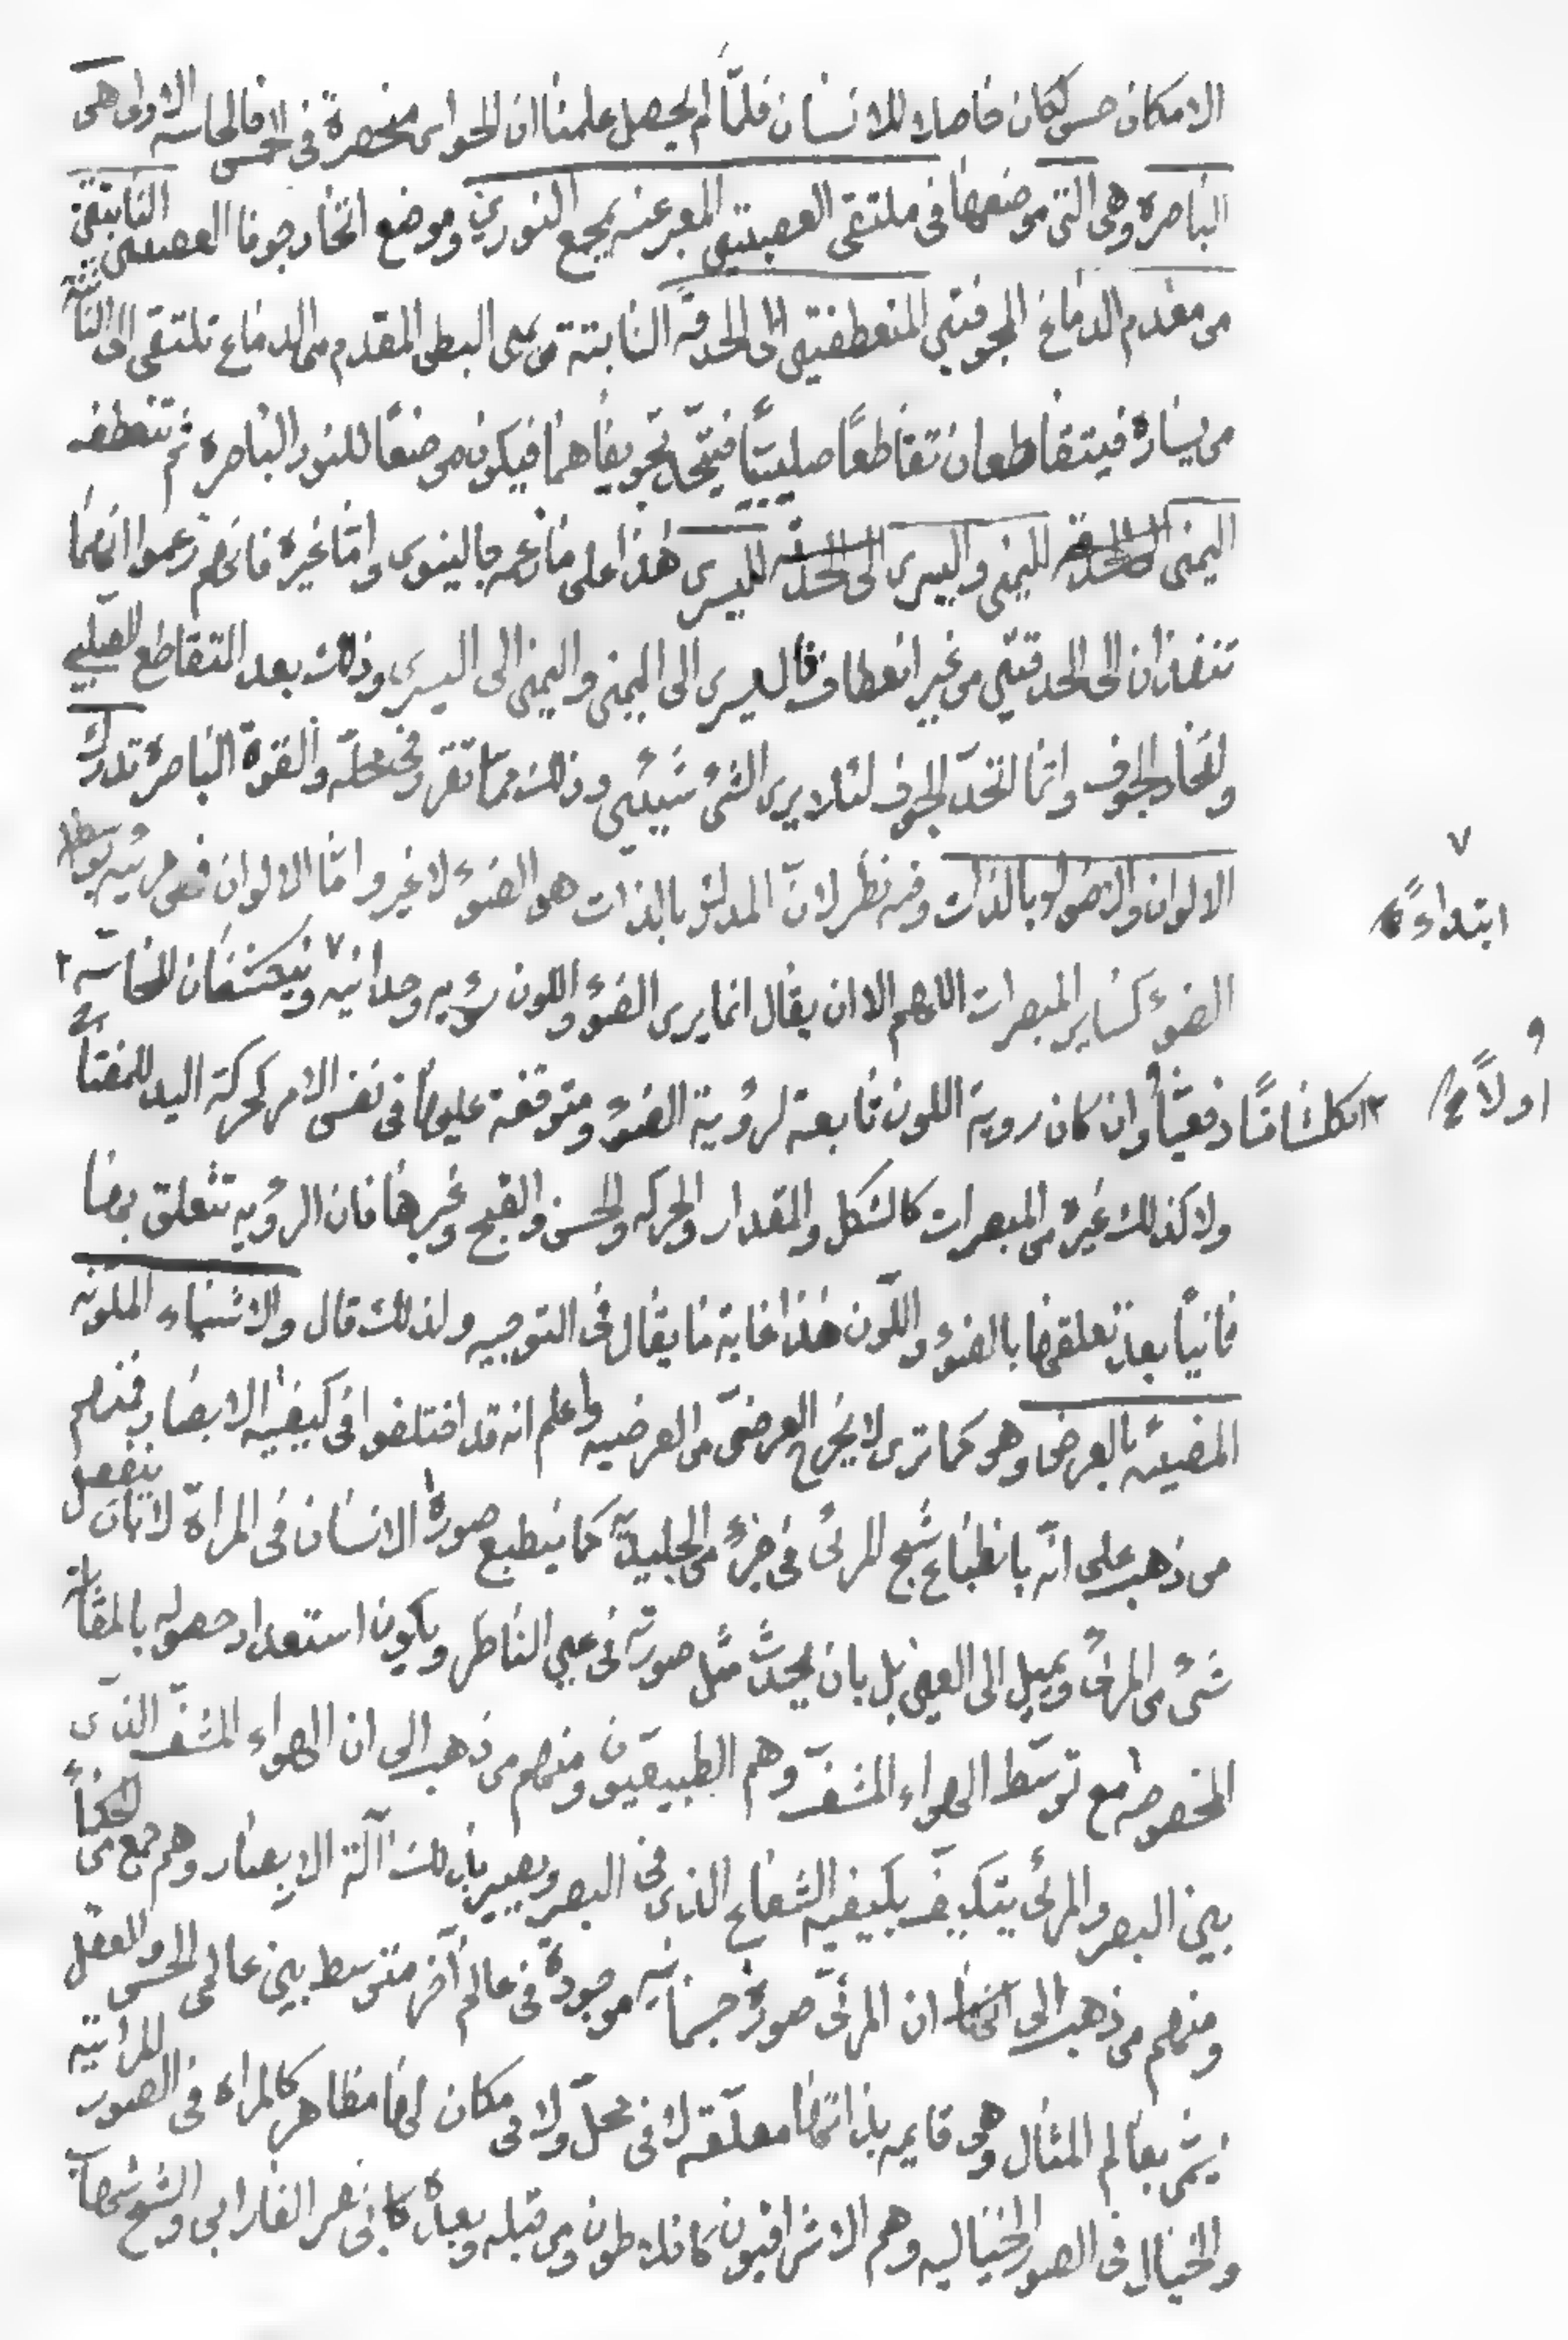 الامكان حس لكان حاصلا للانسان فلمّا لم يحصل علمنا ان الحواس منحصرة فى الخمس فالحاسه الاولى هى
الباصرة وهى التى موضعها فى ملتقى العصبتين المعبر عنه بمجمع النورين وموضع اتحاد جوفا العصبتين النابتتين
من مقدم الدماغ المجوفتين المنعطفتين الى الحدقة النابتة من يمين البطن المقدم من الدماغ تلتقى الى النابتة
من يساره فيتقاطعان تقاطعًا صليبيًا فيتحد تجويفاهما فيكون موضعًا للنور الباصره ثم تنعطف
اليمنى الى الحدقه اليمنى واليسرى الى الحدقه اليسرى هذا على ما زعمه جالينوس وامّا غيره فانهم زعموا انهما
تنفذان الى الحدقتين من غير انعطاف فاليسرى الى اليمنى واليمنى الى اليسرى وذلك بعد التقاطع الصليبي
واتحاد الجوف وانما اتحد الجوف لئلا يرى الشئ شيئين وذلك ممّا تقرر فى محلّه والقوة الباصره تدرك
الالوان والاضواء بالذات وفيه نظر لانّ المدرك بالذات هو الضوء لا غير وامّا الالوان فهى مرئيه بتوسط
الضوء كساير المبصرات اللهم الا ان يقال انما يرى الضوء واللون رؤيه وحدانيه ٧ وينكشفان للحاسّه ٢
ابتداءً
٢ انكشافًا دفعيًا وان كان روية اللون تابعة لرؤية الضوء ومتوقفة عليها فى نفس الامر كحركة اليد للمفتاح
أولاً
ولا كذلك غيره من المبصرات كالشكل والمقدار والحركه والحسن والقبح وغيرها فان الرؤيه تتعلق بها
ثانيًا بعد تعلقها بالضوء واللّون هذا غاية ما يقال فى التوجيه ولذلك قال والاشياء الملوّنه
المضيئه بالعرض وهو كما ترى لا يخرج العرضىّ من العرضيه واعلم انه قد اختلفوا فى كيفيه الابصار فمنهم
من ذهب على انّه بانطباع شبح المرئى فى جزء من الجليديّة كما ينطبع صورة الانسان فى المراة لا بان ينفصل
شئ من المرئى ويميل الى العين بل بان يحدث مثل صورته فى عين الناظر ويكون استعداد حصوله بالمقابلة
المخصوصه مع توسّط الهواء المشفّ وهم الطبيعيّون ومنهم من ذهب الى ان الهواء المشفّ الذى
بين البصر والمرئى يتكيّف بكيفيه الشعاع الذى فى البصر ويصير بذلك آلة الابصار وهم جمع من الحكمأ
ومنهم من ذهب الى ان المرئىّ صورة جسمانيه موجودة فى عالم آخر متوسط بين عالمى الحس والعقل
يسمى بعالم المثال وهى قايمه بذاتها معلّقه لا فى محلّ ولا فى مكان لها مظاهر كالمراه فى الصور المرأتيه
والخيال فى الصور الخياليه وهم الاشراقيون كافلاطون ومن قبله وبعده كابى نصر الفارابى والشيخ شهاب